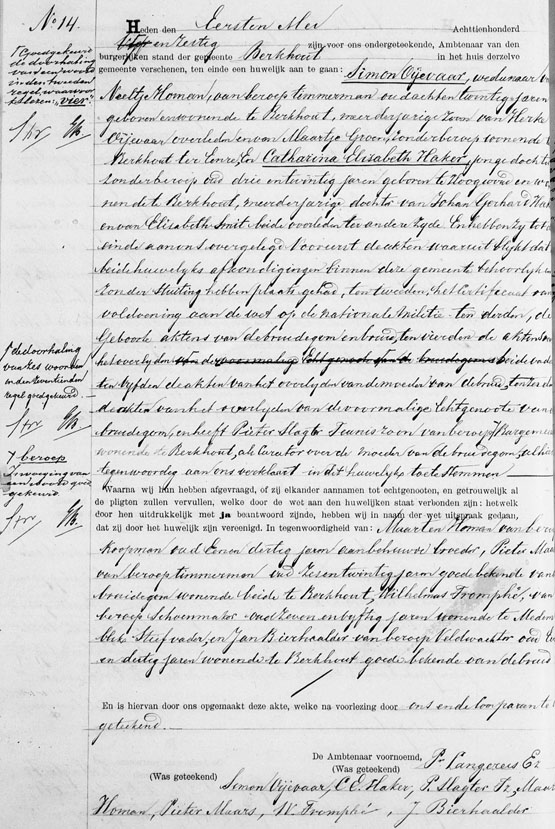 No 14.
Heden den Eersten Mei Achttienhonderd
en zestig zijn voor ons ondergeteekende, Ambtenaar van den
burgerlijken stand der gemeente Berkhout in het huis derzelve
gemeente verschenen, ten einde een huwelijk aan te gaan: Simon Vijevaar, weduwnaar van
Neeltje Homan, van beroep timmerman oud achtentwintig jaren
geboren en wonende te Berkhout, meerderjarige zoon van
Vijevaar overleden en van Maartje Groen, zonder beroep wonende te
Berkhout ter Eenre, En Catharina Elisabeth Haker, jonge dochter
zonder beroep oud drie entwintig jaren geboren te Hoogwoud en wo-
nende te Berkhout, meerderjarige dochter van Johan Gerhard Haker
en van Elisabeth Smit beide overleden ter andere zyde En hebben zy tot
einde aan ons overgelegd Vooreerst de akten waaruit blykt dat
beide huwelyks afkondigingen binnen deze gemeente behoorlyk en
zonder stuiting hebben plaats gehad, ten tweeden: het certificaat van
voldoening aan de wet op de Nationale Militie ten derden, de
Geboorte aktens van de bruidegom en bruid, ten vierden de aktens van
het overlyden van de voormalige Echtgenoot van de bruidegom beide vaders
ten vyfden de akten van het overlyden van de moeder van de bruid, ten zesden
de akten van het overlyden van de voormalige Echtgenoote van de
bruidegom, en heeft Pieter Slagter Teunis zoon van beroep Burgemeester
wonende te Berkhout, als Curator over de moeder van de bruidegom, alhier
tegenwoordig aan ons verklaart in dit huwelyk toe te stemmen
Waarna wij hun hebben afgevraagd, of zij elkander aannamen tot echtgenooten, en getrouwelijk al
de pligten zullen vervullen, welke door de wet aan den huwelijken staat verbonden zijn: hetwelk
door hen uitdrukkelijk met ja beantwoord zijnde, hebben wij in naam der wet uitspraak gedaan,
dat zij door het huwelijk zijn vereenigd. In tegenwoordigheid van: Maarten Homan van beroep
Koopman oud Eenen dertig jaren aanbehuwde broeder, Pieter Maars
van beroep timmerman oud Zesentwintig jaren goede bekende van de
bruidegom wonende beide te Berkhout, Wilhelmus Tromphé, van
beroep Schoenmaker oud Zeven en vyftig jaren wonende te Medem-
blik Stiefvader, en Jan Bierhaalder van beroep Veldwachter oud
en dertig jaren wonende te Berkhout goede bekende van de bruid
En is hiervan door ons opgemaakt deze akte, welke na voorlezing door ons en de Comparanten is
geteekend.
De Ambtenaar voornoemd,
(Was geteekend) P. Langereis Ez
(Was geteekend)
Simon Vijevaar, C. E. Haker, P. Slagter Tz, Maarten
Homan, Pieter Maars, W. Tromphé, J. Bierhaalder
Goedgekeurd
de doorhaling
van een woord
in den tweeden
regel, waarvoor
te lezen: „vier”
de doorhaling
van zes woorden
in den twentienden
regel goedgekeurd
beroep
byvoeging van
een woord goed
gekeurd